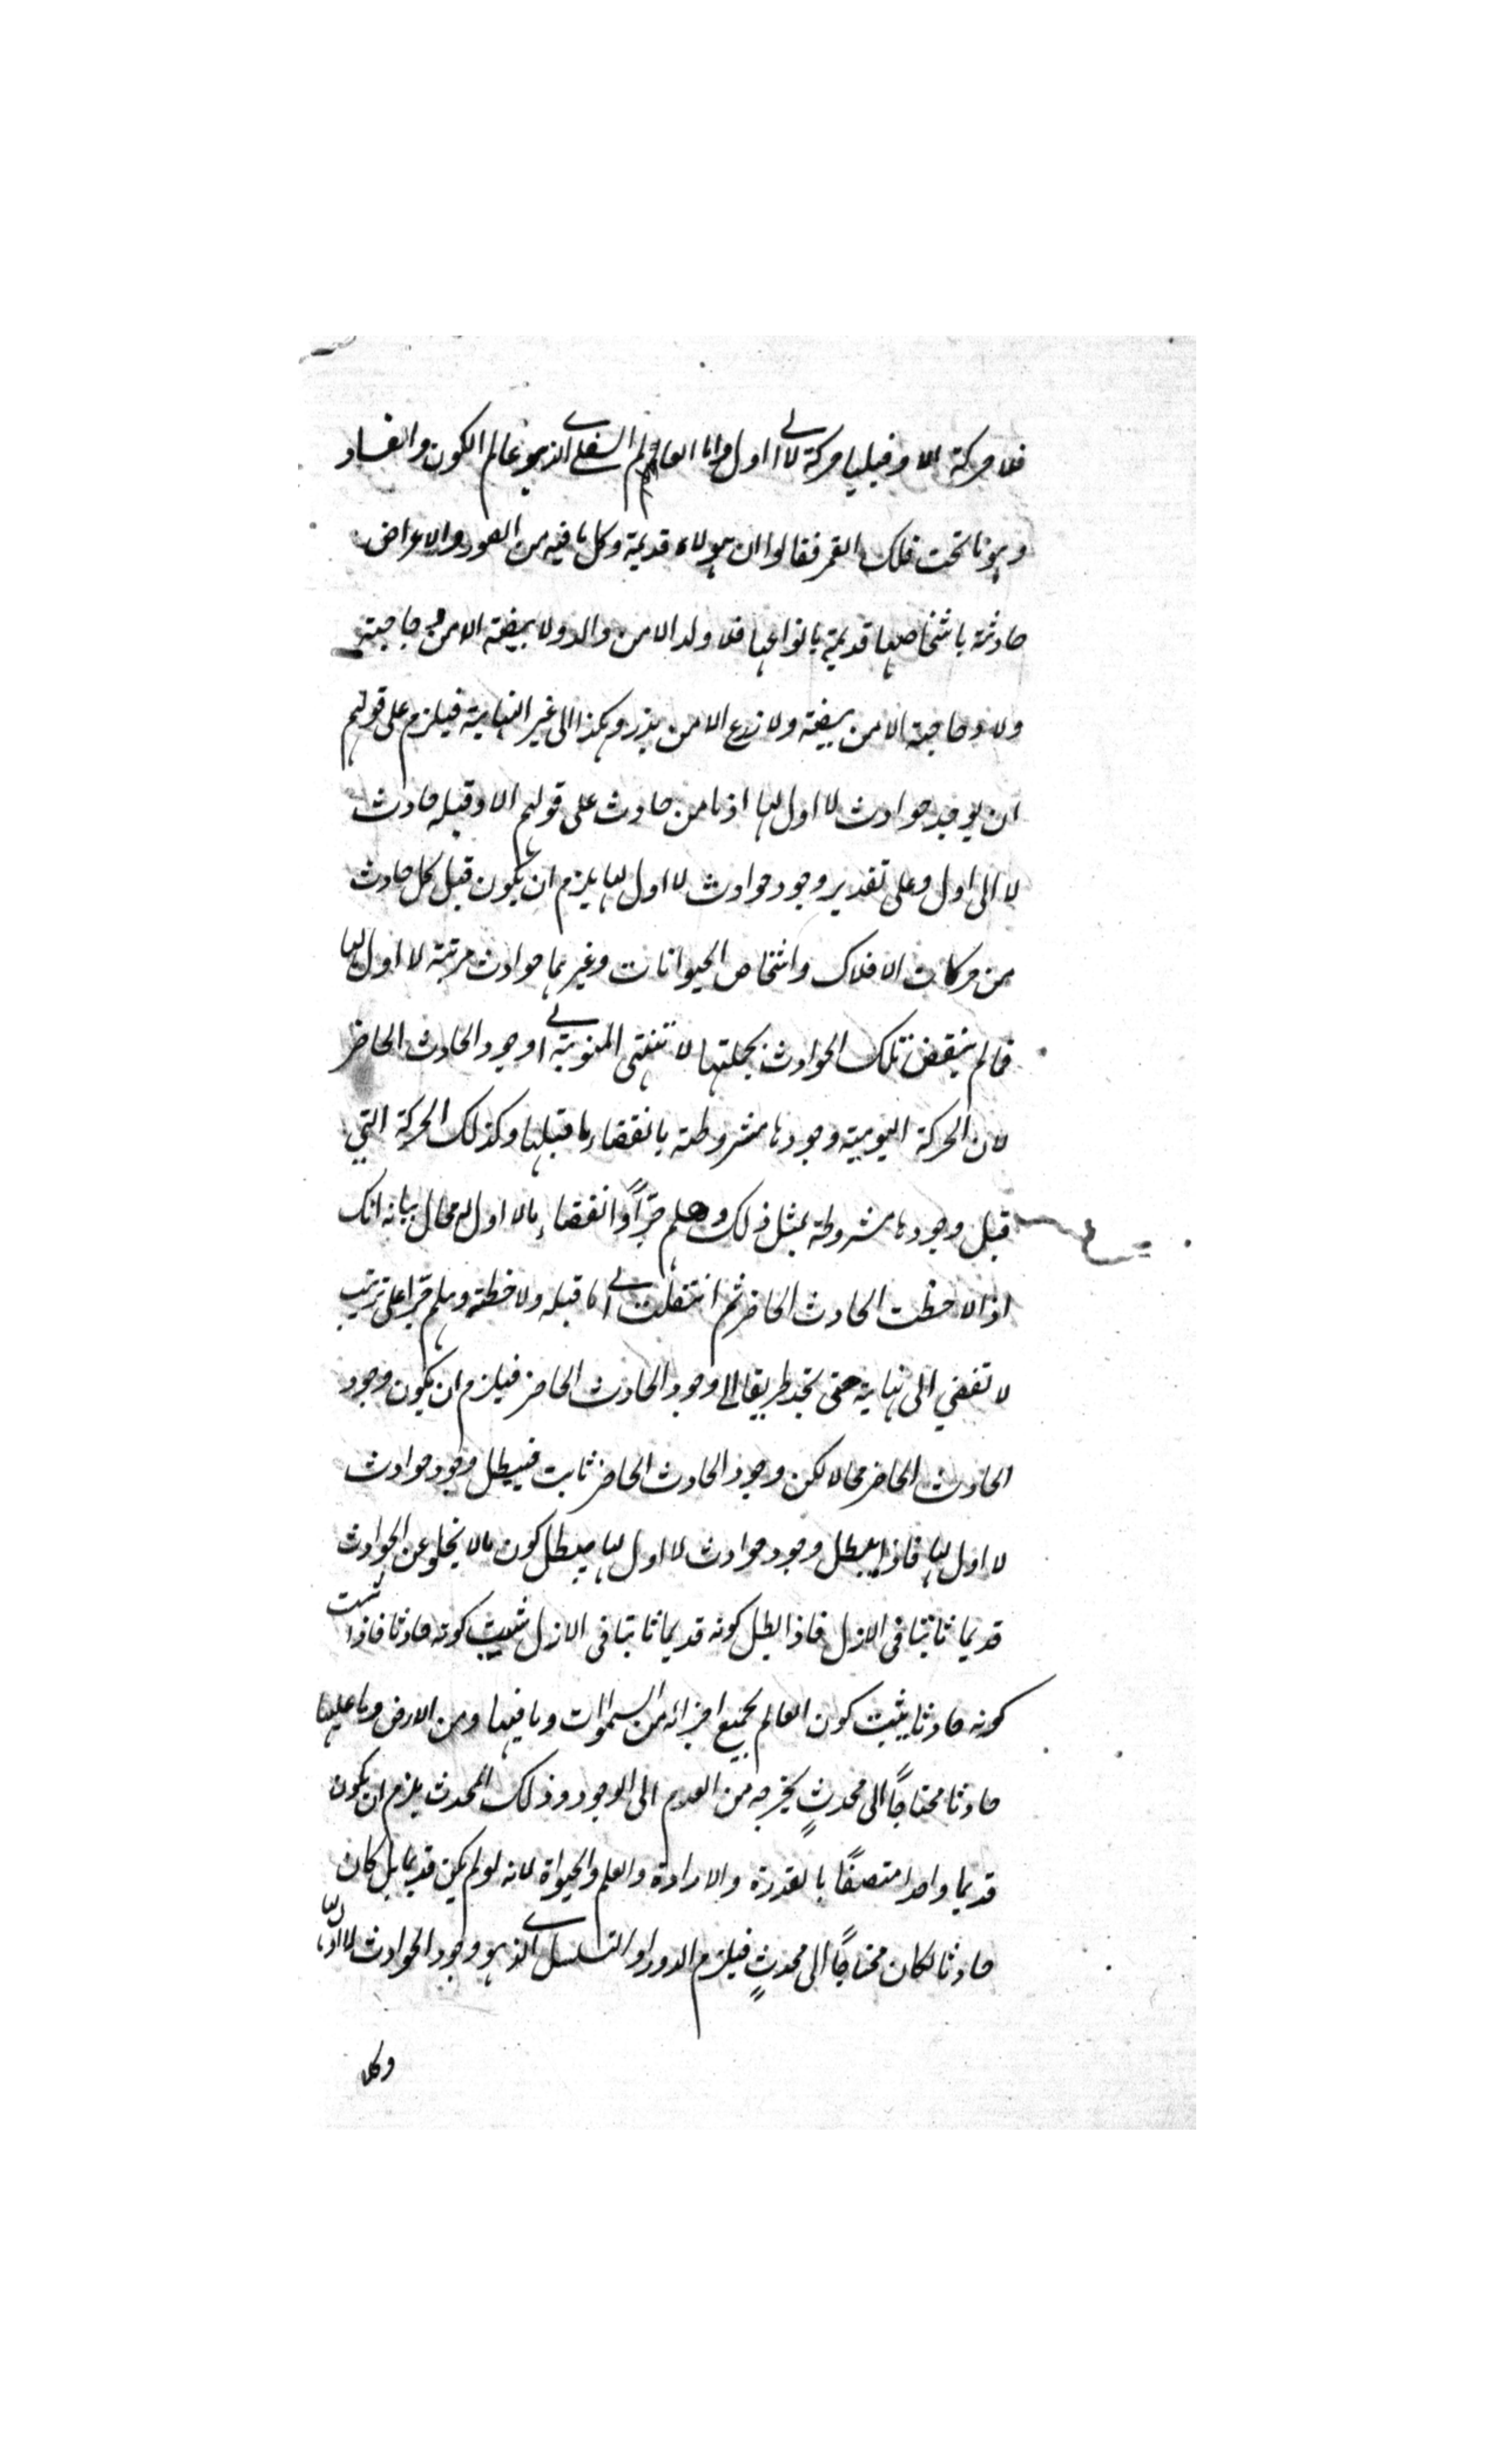 فلا حركة الا وقبلها حركة لا الى اول واما العالم السفلي الذي هو عالم الكون والفساد
وهو ما تحت فلك القمر فقالوا ان هيولاه قديمة وكل ما فيه من الصور والاعراض
حادثة باشخاصها قديمة بانواعها فلا ولد الا من والد ولا بيضة الا من دجاجة
ولا دجاجة الا من بيضة ولا زرع الا من بذر وهكذا الى غير النهاية فيلزم على قولهم
ان يوجد حوادث لا اول لها اذ ما من حادث على قولهم الا وقبله حادث
لا الى اول وعلى تقدير وجود حوادث لا اول لها يلزم ان يكون قبل كل حادث
من حركات الافلاك واشخاص الحيوانات وغيرهما حوادث مرتبة لا اول لها
فما لم ينقض تلك الحوادث بجملتها لا تنتهي النوبة الى وجود الحادث الحاضر
لان الحركة اليومية وجودها مشروطة بانقضاء ما قبلها وكذلك الحركة التي
قبل وجودها مشروطة بمثل ذلك وهلم جرّاً وانقضاء ما لا اول له محال بيانه انك
اذا لاحظت الحادث الحاضر ثم انتقلت الى ما قبله ولاحظته وهلم جرّا على ترتيب
لا تفضي الى نهاية حتى تجد طريقا الى وجود الحادث الحاضر فيلزم ان يكون وجود
الحادث الحاضر محالا لكن وجود الحادث الحاضر ثابت فيبطل وجود حوادث
لا اول لها فاذا يبطل وجود حوادث لا اول لها يبطل كون ما لا يخلو عن الحوادث
قديما ثابتا في الازل فاذا بطل كونه قديما ثابتا في الازل ثبت كونه حادثا فاذا ثبت
كونه حادثا يثبت كون العالم بجميع اجزائه من السموات وما فيها ومن الارض وما عليها
حادثا محتاجاً الى محدثٍ يخرجه من العدم الى الوجود وذلك المحدث يلزم ان يكون
قديما واحدا متصفاً بالقدرة والارادة والعلم والحيوة لانه لو لم يكن قديما بل كان
حادثا لكان محتاجاً الى محدثٍ فيلزم الدور او التسلسل الذي هو وجود الحوادث لا اول لها
وكلا